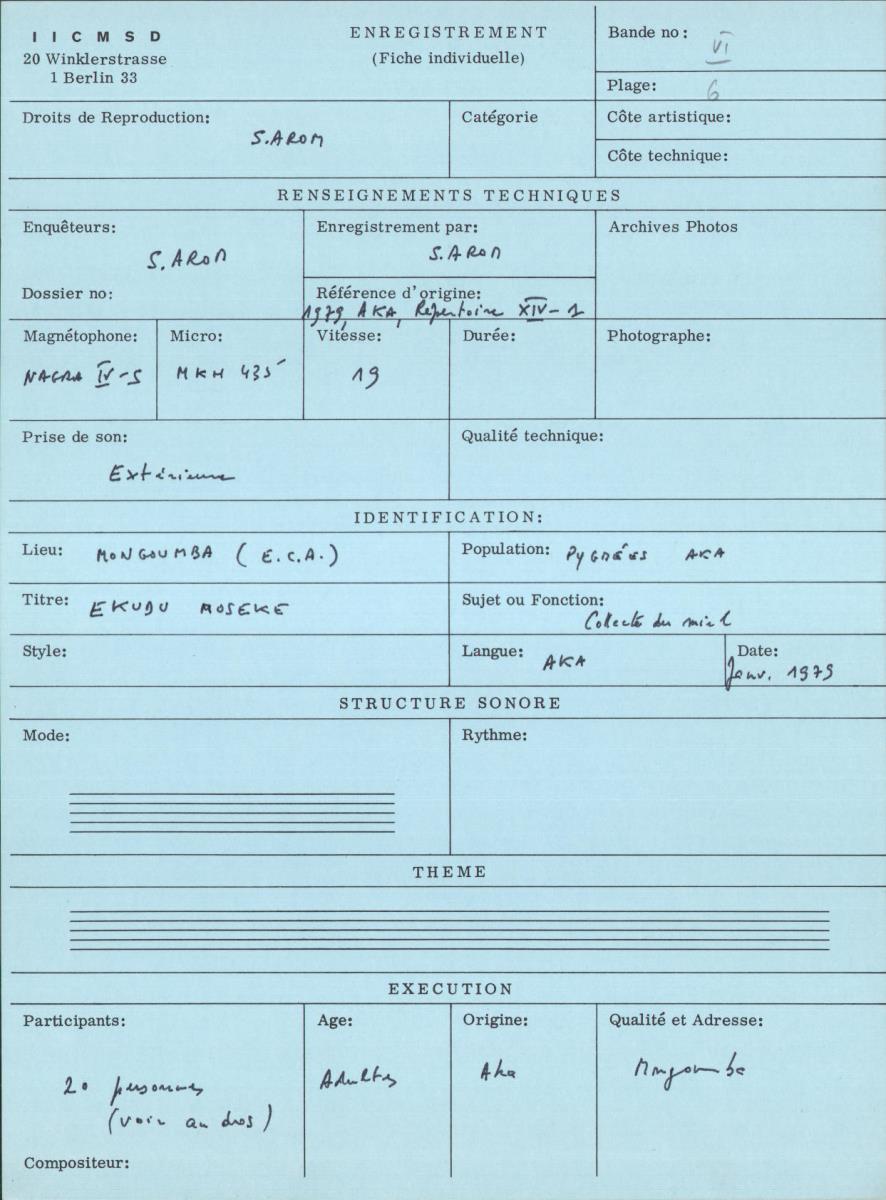 IICMSD
20 Winklerstrasse
1 Berlin 33
ENREGISTREMENT
(Fiche individuelle)
Bande no: VI
Plage: 6
Droits de Reproduction:
S.AROM
Catégorie
Côte artistique:
Côte technique:
RENSEIGNEMENTS TECHNIQUES
Enquêteurs:
S.AROM
Dossier no:
Enregistrement par:
S.AROM
Référence d'origine:
1979, AKA, Répertoire XIV-1
Archives Photos
Magnétophone:
NAGRA IV-S
Micro:
MKH 435
Vitesse:
19
Durée:
Photographe:
Prise de son:
Extérieure
Qualité technique:
IDENTIFICATION:
Lieu: MONGOUMBA (E.C.A.)
Population: PYGMÉES AKA
Titre: EKUDU MOSEKE
Sujet ou Fonction:
Collecte du miel
Style:
Langue: AKA
Date:
Janv. 1979
STRUCTURE SONORE
Mode:
Rythme:
THEME
EXECUTION
Participants:
20 personnes
(voir au dos)
Age:
Adultes
Origine:
Aka
Qualité et Adresse:
Mongoumba
Compositeur: